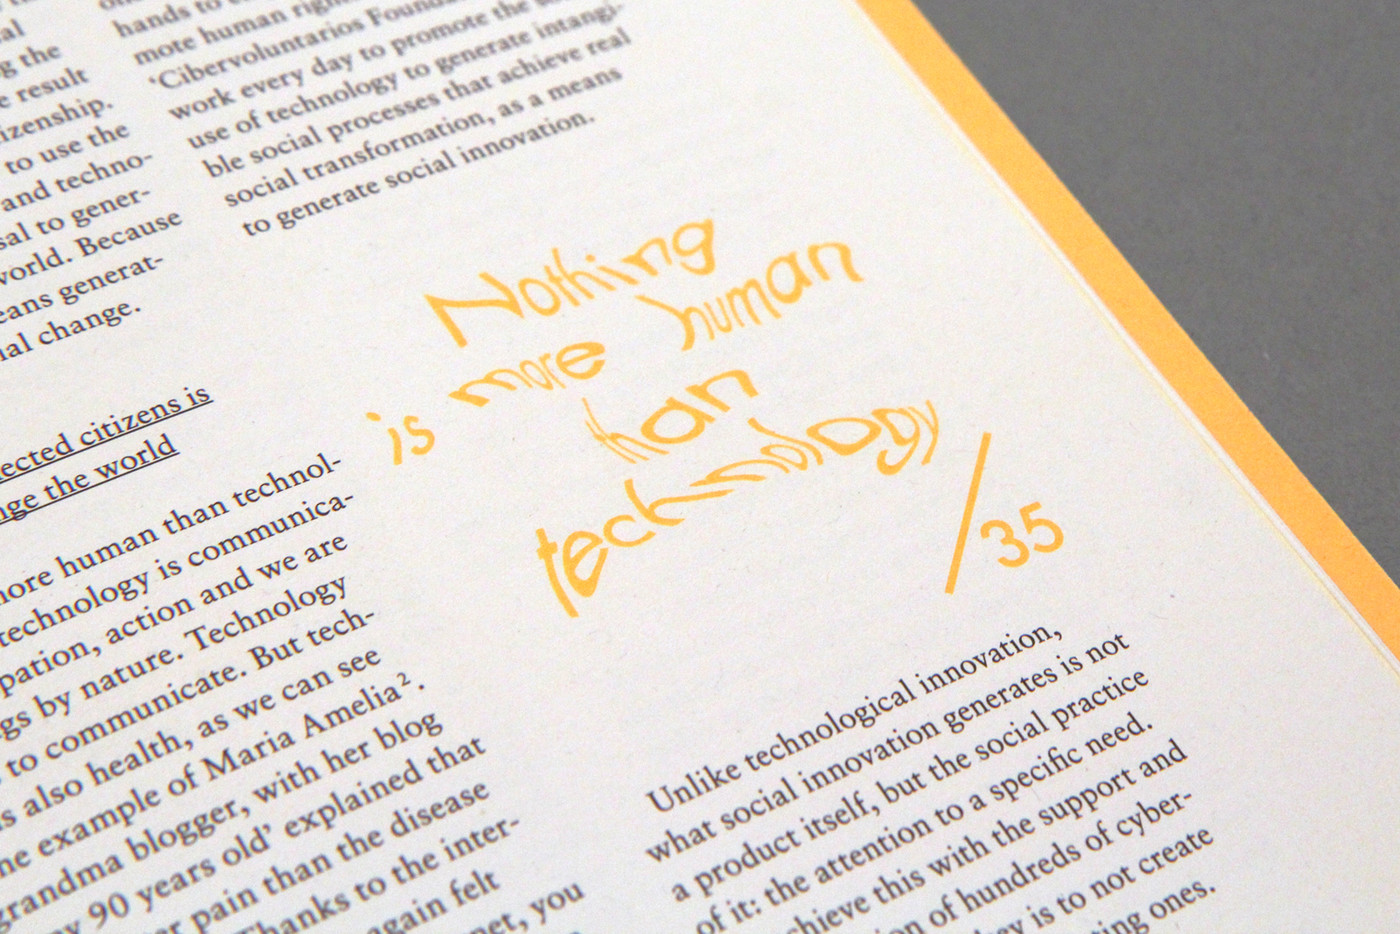 al
g the
e result
izenship.
to use the
and techno-
sal to gener-
world. Because
eans generat-
ial change.
ected citizens is
nge the world
more human than technol-
technology is communica-
pation, action and we are
gs by nature. Technology
to communicate. But tech-
s also health, as we can see
ne example of Maria Amelia².
grandma blogger, with her blog
ny 90 years old’ explained that
er pain than the disease
Thanks to the inter-
again felt
net, you
hands to
mote human
‘Cibervoluntarios
work every day to promote the
use of technology to generate intangi-
ble social processes that achieve real
social transformation, as a means
to generate social innovation.
Nothing
is more human
than
technology
/35
Unlike technological innovation,
what social innovation generates is not
a product itself, but the social practice
of it: the attention to a specific need.
chieve this with the support and
on of hundreds of cyber-
ey is to not create
ting ones.